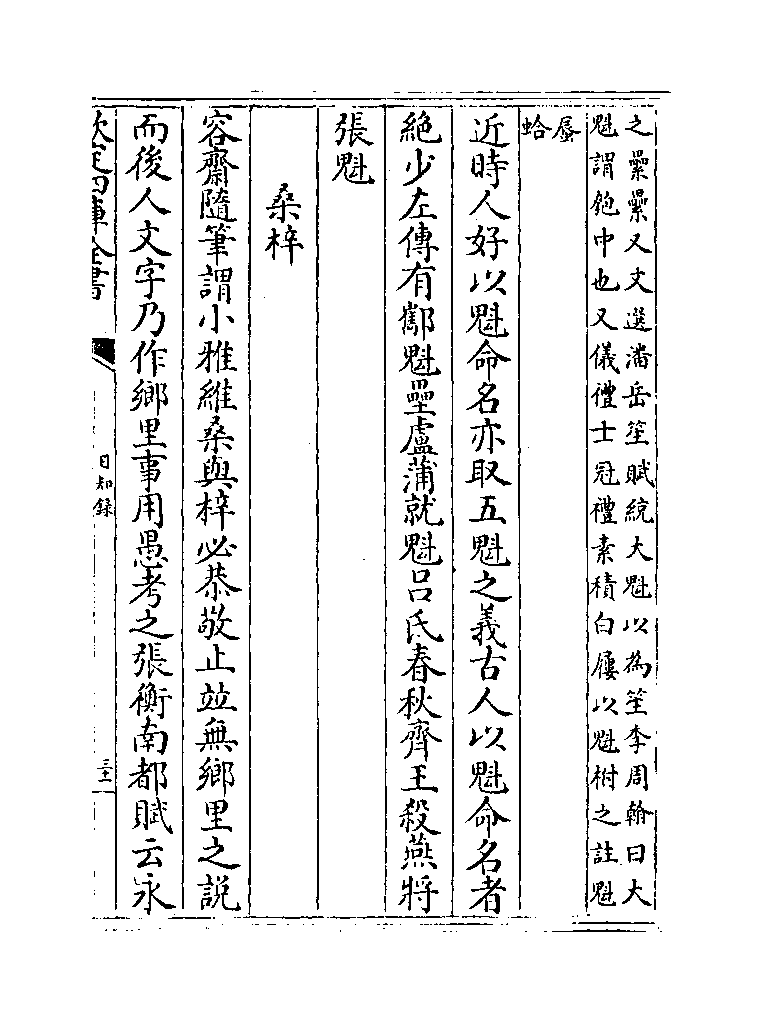 之纍纍又文選潘岳笙賦統大魁以為笙李周翰曰大
魁謂匏中也又儀禮士冠禮素積白屨以魁柎之註魁
蜃
蛤
近時人好以魁命名亦取五魁之義古人以魁命名者
絶少左傳有酅魁壘盧蒲就魁呂氏春秋齊王殺燕將
張魁
桑梓
容齋隨筆謂小雅維桑與梓必恭敬止並無鄉里之説
而後人文字乃作鄉里事用愚考之張衡南都賦云永
欽定四庫全書
日知録
三十二